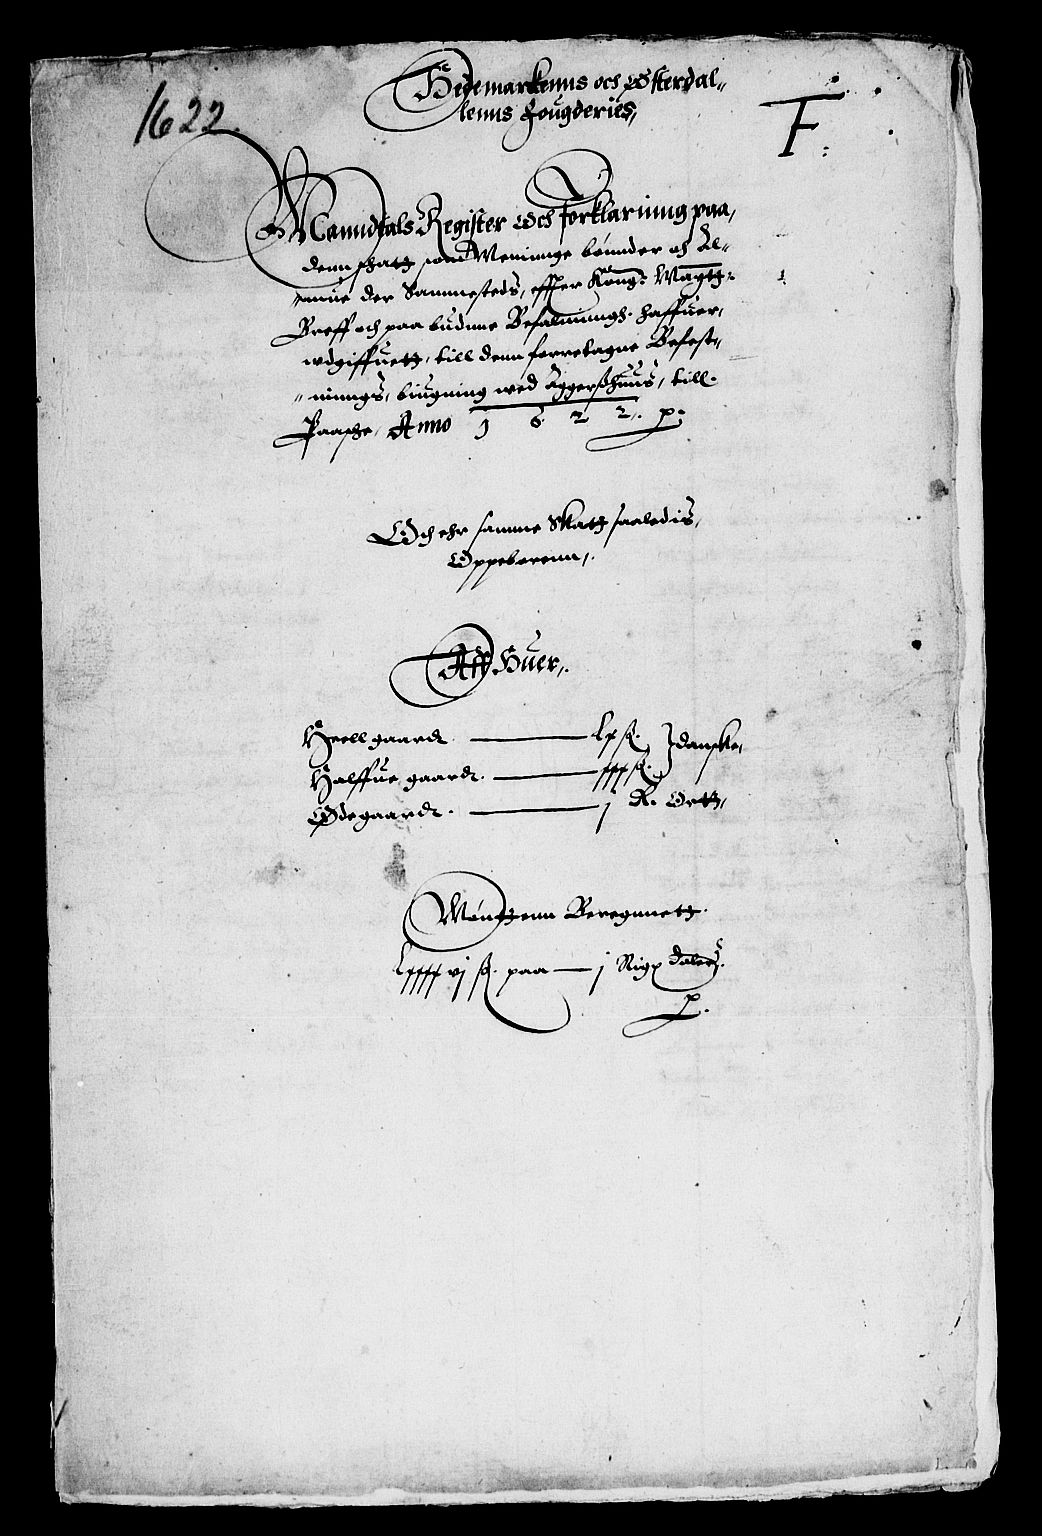 1622.
Hedemarkenns och Østerdal-
lenns Fougderies,
F:
Manndtals Register Och forklaring paa,
denn schatt som Meninge bønnder och Al-
mue der Sammesteds, effter Kong: Maytt:
Breff och paa budne Befalnningh. haffuer,
vdgiffuett, till denn forretagne Befest-
nings, biugning wed Aggershuus, till.
Paasche, Anno 1622. p:
Och ehr samme Skatt saaledis,
Oppeborenn,.
Aff Huer,.
Heell gaardt. — lx ß. danske,
Halffue gaardt. — xxx ß.
Ødegaardt. — j R. Ortt,
Møntzenn Beregnnett.
lxxxxvj ß. paa — j Rigx daler.
p.